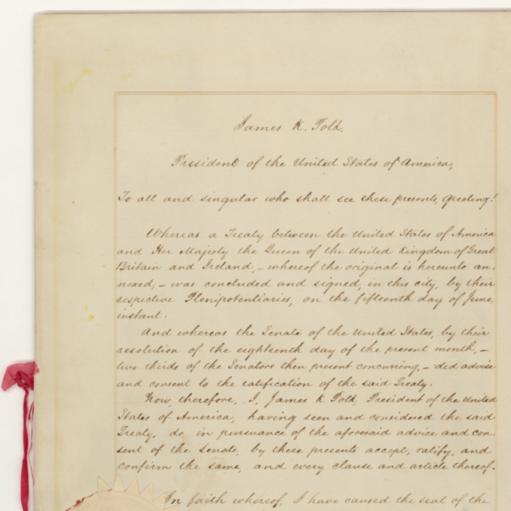 James K. Polk,
President of the United States of America,
To all and singular who shall see these presents, Greeting!
Whereas a Treaty between the United States of America
and Her Majesty the Queen of the United Kingdom of Great
Britain and Ireland,—whereof the original is hereunto an-
nexed,—was concluded and signed, in this city, by their
respective Plenipotentiaries, on the fifteenth day of June,
instant.
And whereas the Senate of the United States, by their
resolution of the eighteenth day of the present month,—
two thirds of the Senators then present concurring,—did advise
and consent to the ratification of the said Treaty.
Now, therefore, I, James K. Polk, President of the United
States of America, having seen and considered the said
Treaty, do, in pursuance of the aforesaid advice and con-
sent of the Senate, by these presents accept, ratify, and
confirm the same, and every clause and article thereof.
In faith whereof, I have caused the seal of the